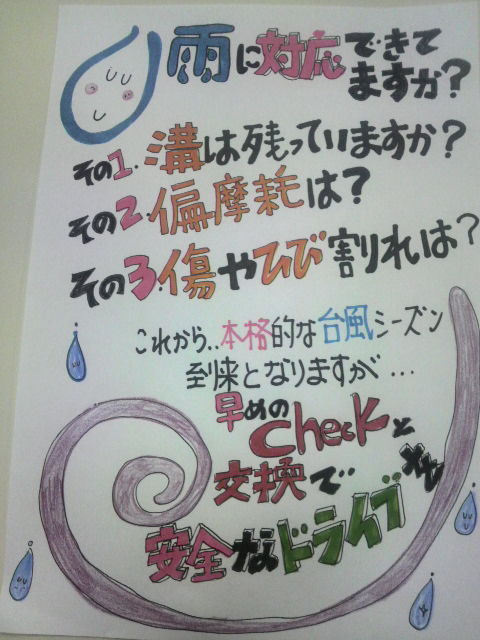 雨に対応できて
ますか?
その1.溝は残っていますか?
その2.偏摩耗は?
その3.傷やひび割れは?
これから..本格的な台風シーズン
到来となりますが...
早めの
checkと
交換で
安全なドライブ